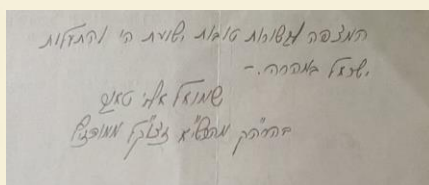 המצפה לבשורות טובות ישועת ה' והתעלות
ישראל במהרה.-
שמואל אלי' טאוב
בהה"ק מהרש"א זצוק"ל ממודזיץ